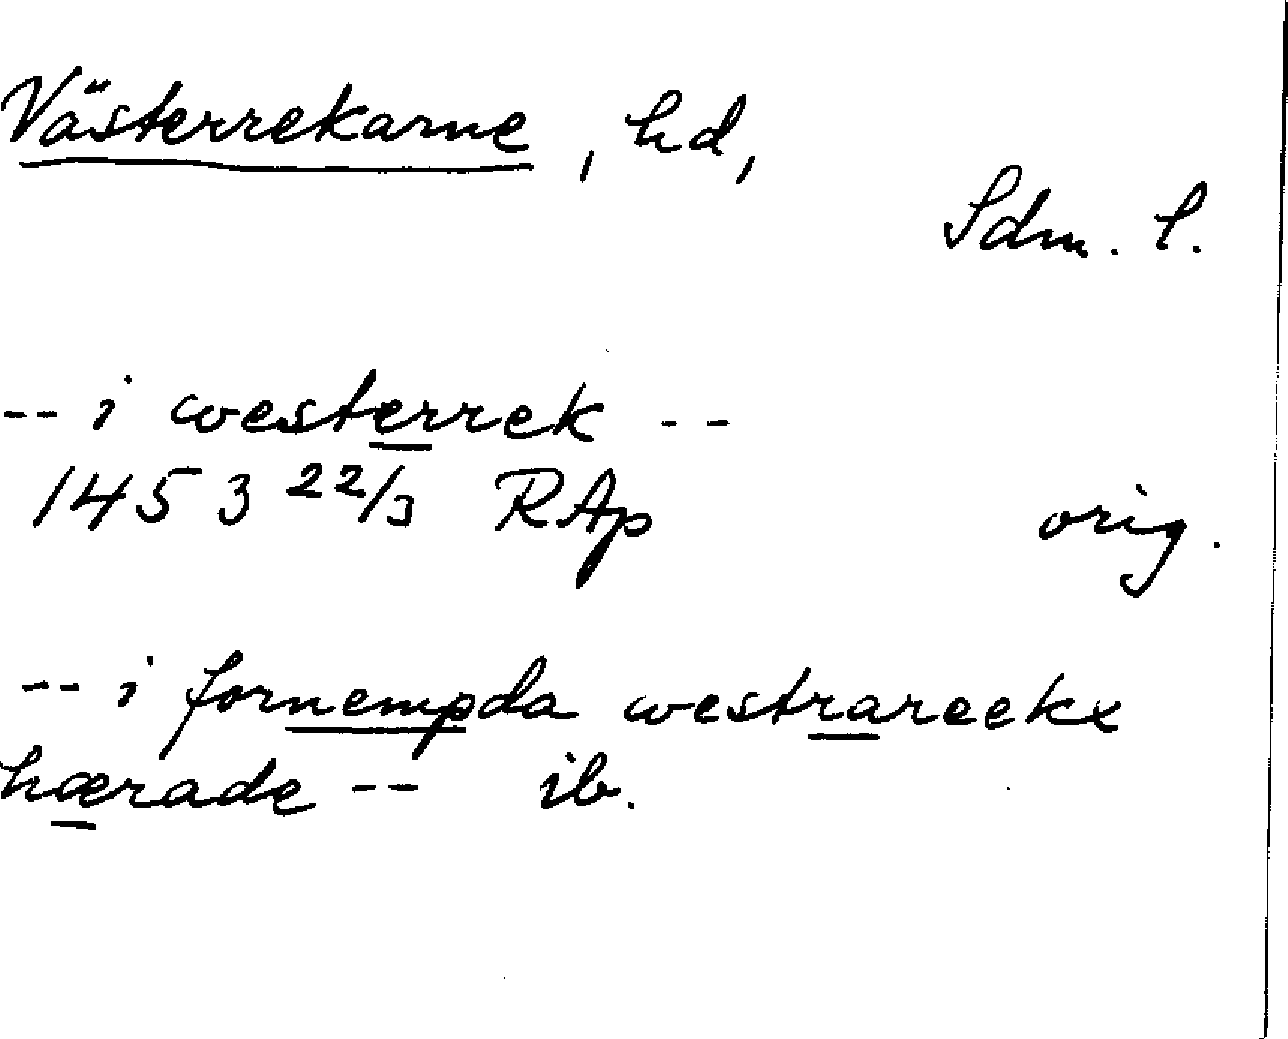 Västerrekarne, hd,
Sdm. l.
-- i westerrek --
1453 22/3 RAp orig.
-- i fornempda westrareekx
hærade -- ib.